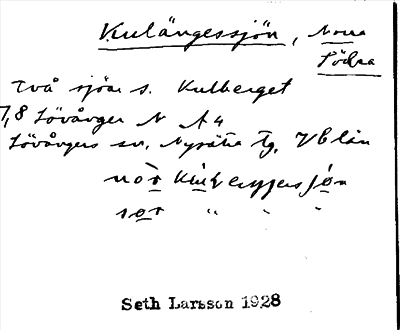 Kulängessjön, Norra
Södra
Två sjöar s. Kulberget
7,8 Lövånger N A4
Lövångers sn, Nysätra tg, Vb län
nòr
sør " " "
Seth Larsson 1928